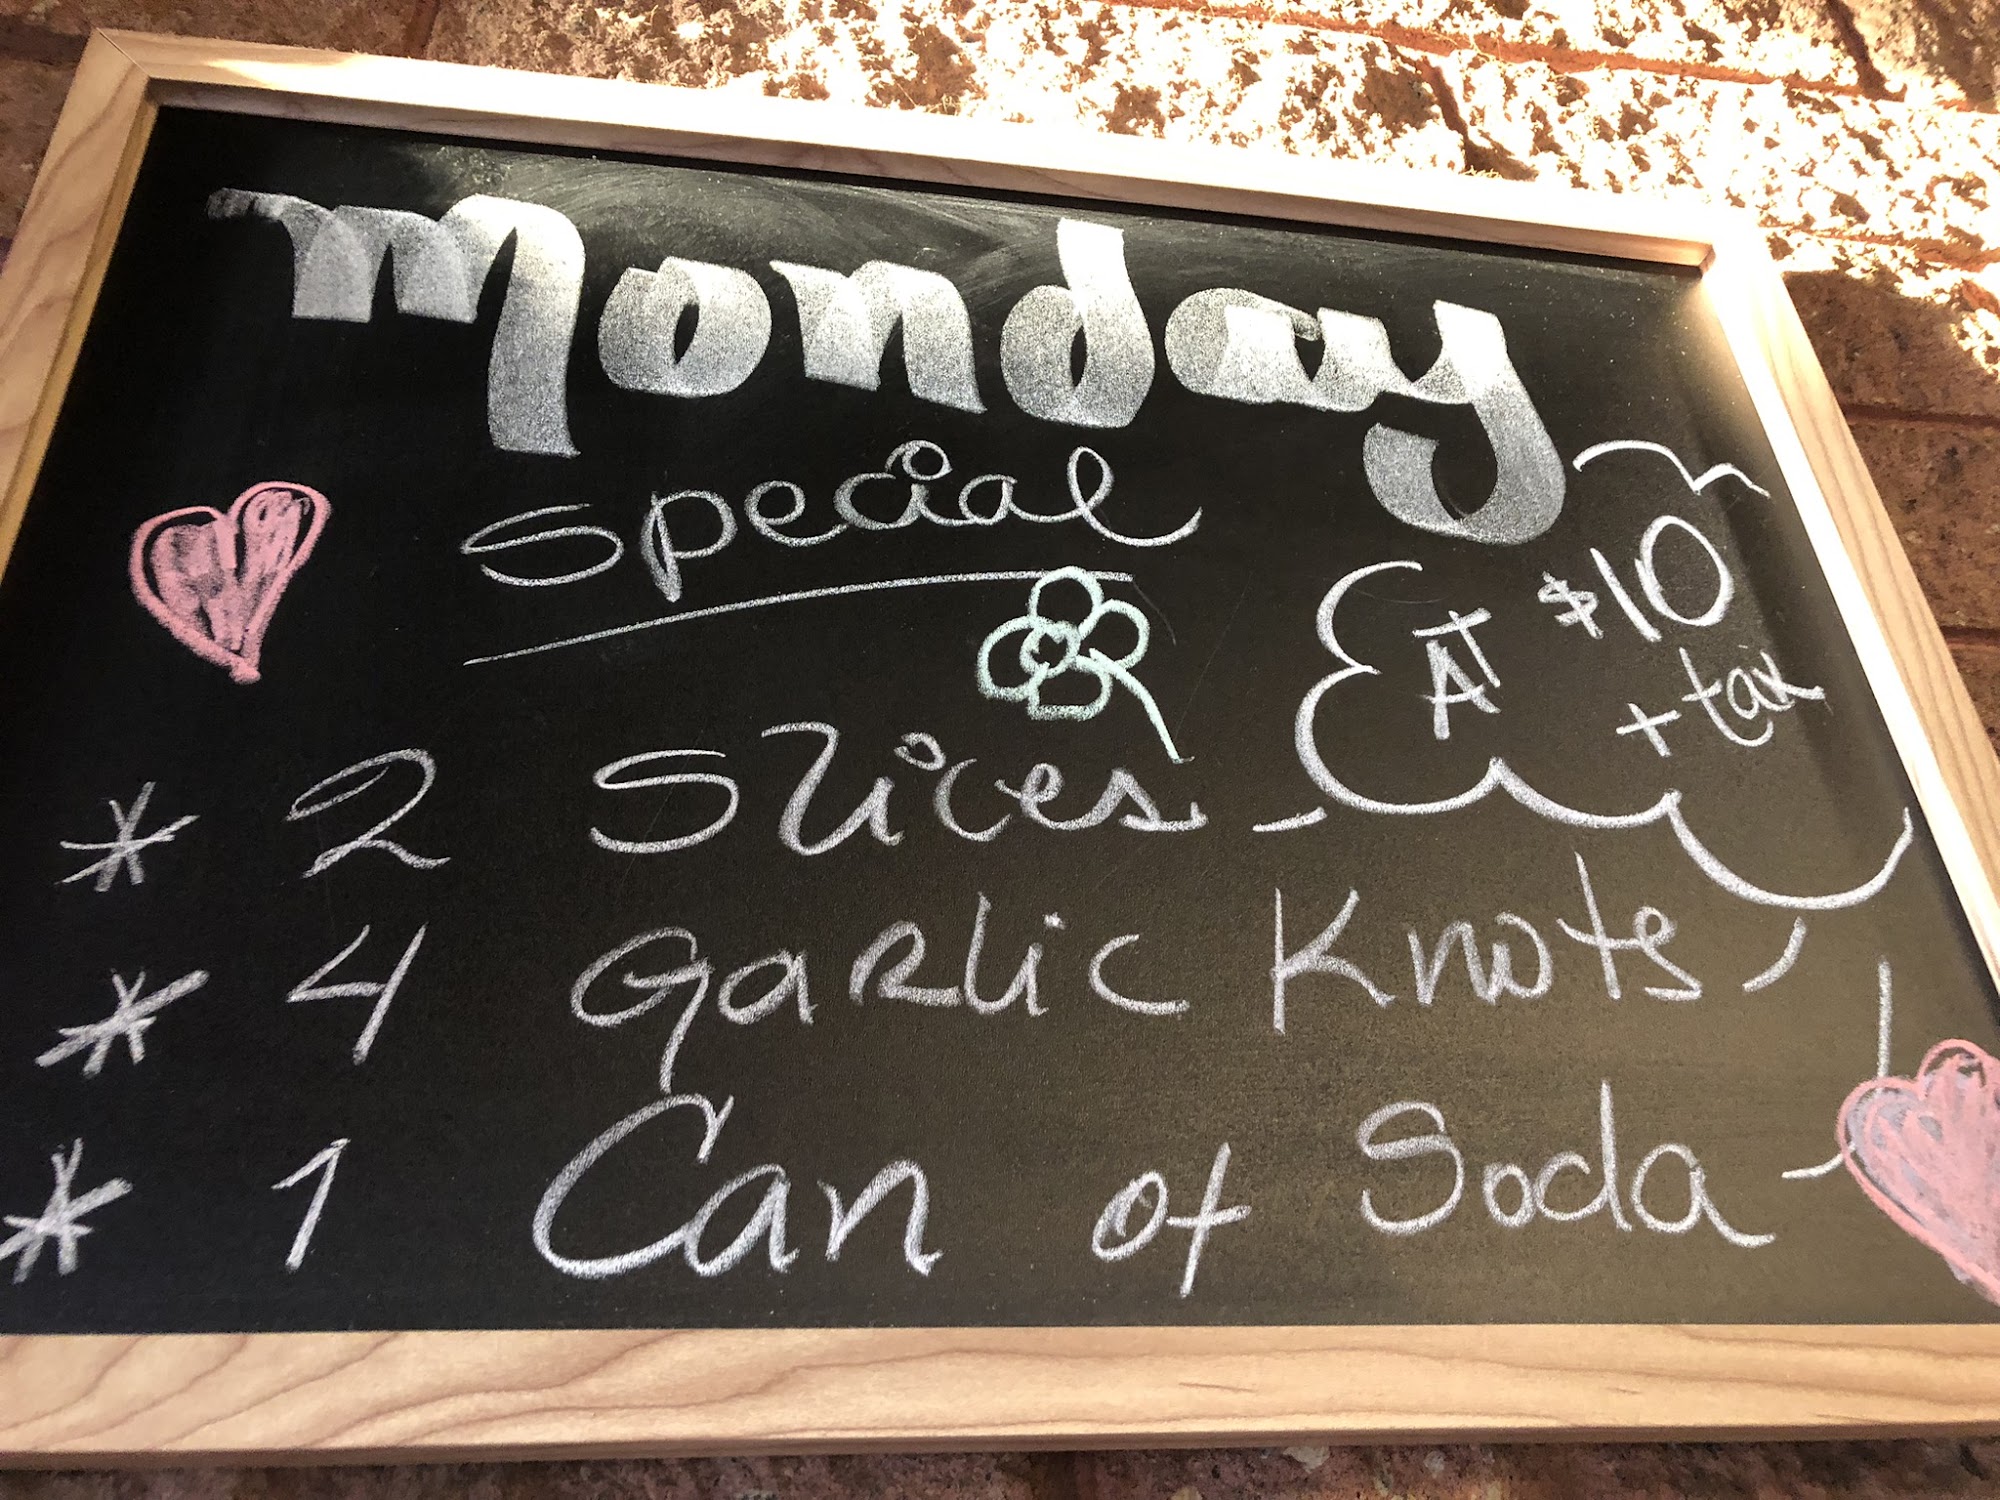 Monday
Special
AT $10
+ tax
* 2 Slices
* 4 Garlic Knots
* 1 Can of Soda